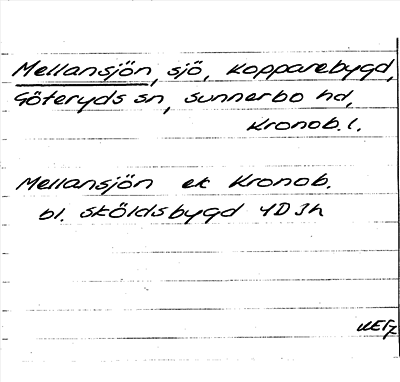 Mellansjön, sjö, Kopparebygd,
Göteryds sn, Sunnerbo hd,
Kronob. l.
Mellansjön ek Kronob.
bl. Sköldsbygd 4D3h